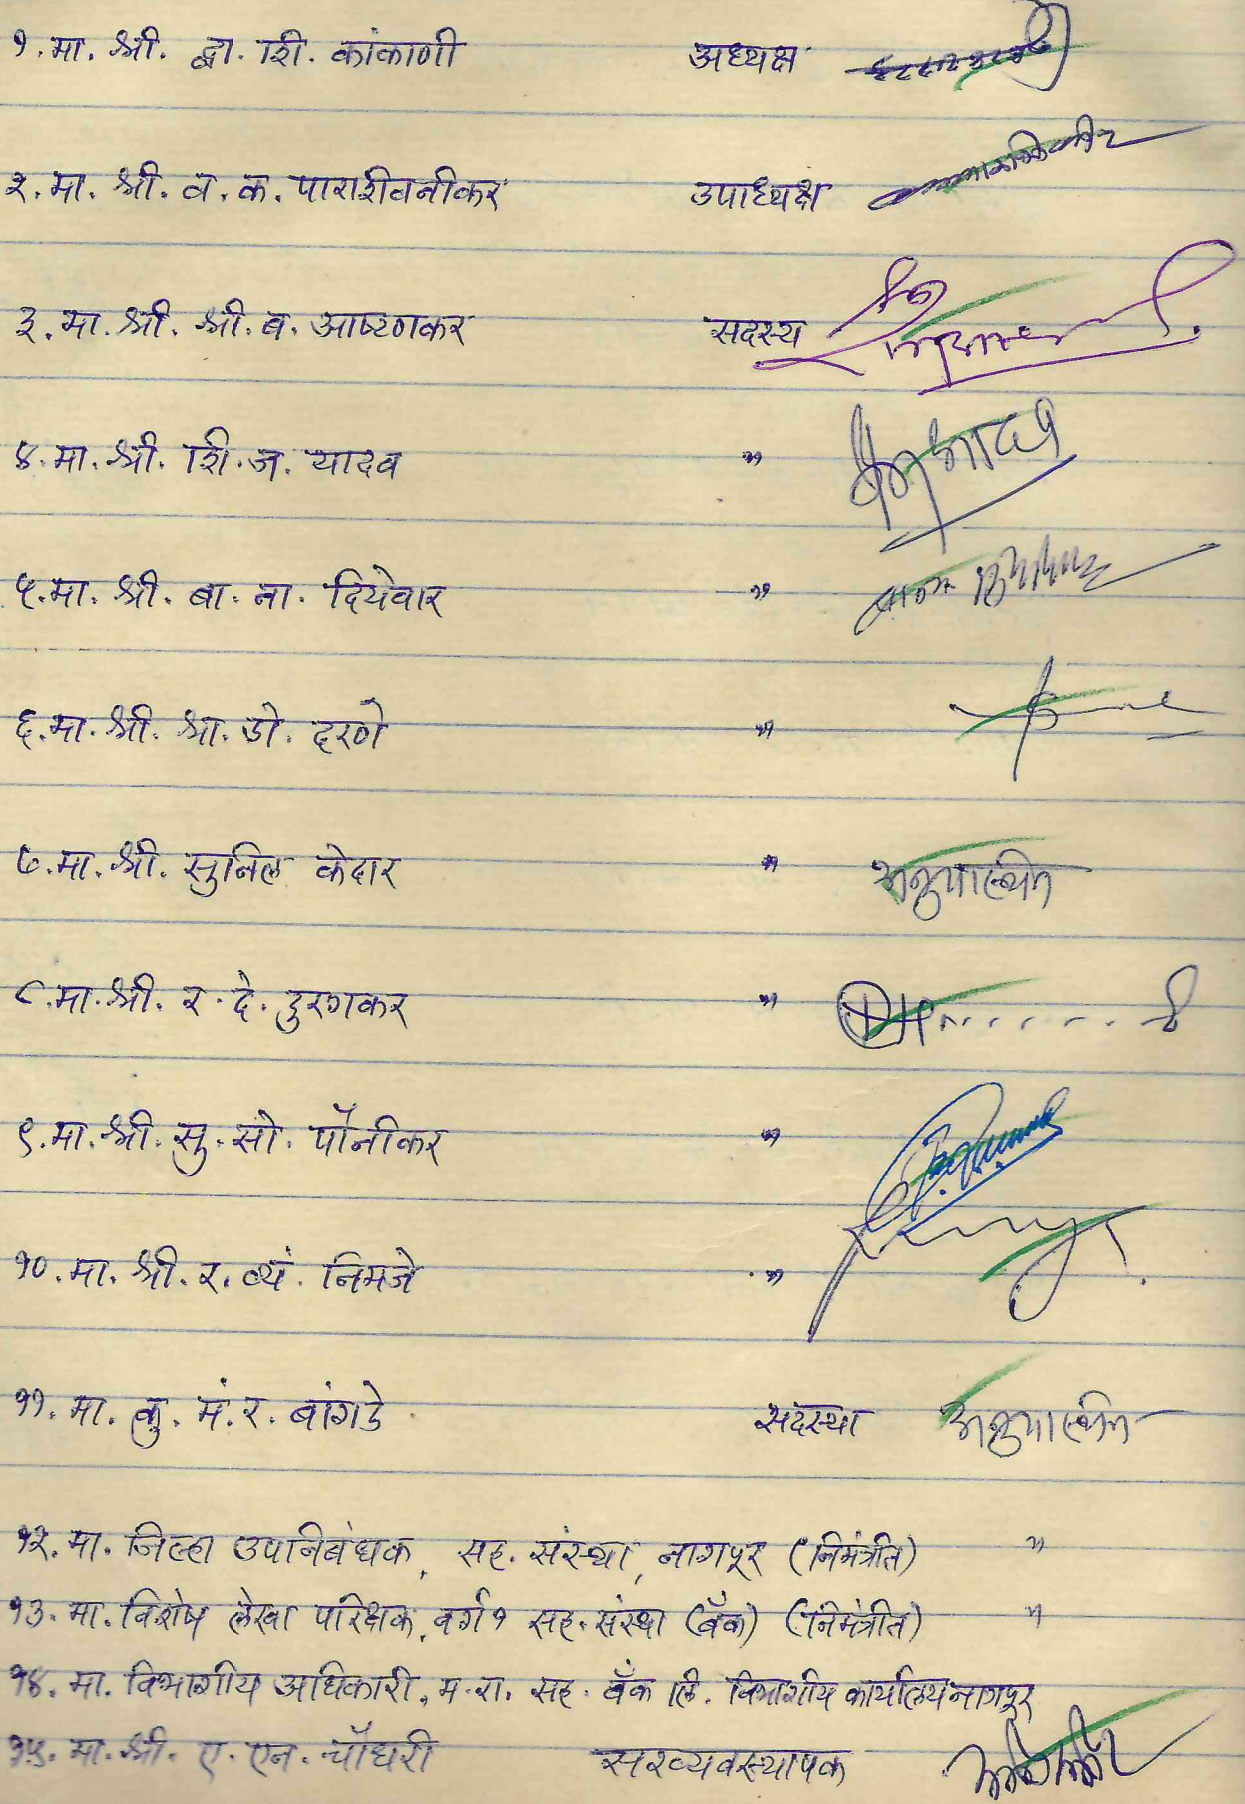 १. मा. श्री. द्वा. शि. कांकाणी अध्यक्ष
२. मा. श्री. व. क. पाराशीवनीकर उपाध्यक्ष
३. मा. श्री. श्री. ब. आष्टणकर सदस्य
४. मा. श्री. शि. ज. यादव "
५. मा. श्री. बा. ना. दियेवार "
६. मा. श्री. श्रा. डो. दरणे "
७. मा. श्री. सुनिल केदार " अनुपास्थित
८. मा. श्री. र. दे. दुरगकर "
९. मा. श्री. सु. सो. पौनीकर "
१०. मा. श्री. र. व्यं. निमजे "
११. मा. कु. मं. र. बांगडे सदस्या अनुपास्थित
१२. मा. जिल्हा उपनिबंधक, सह. संस्था, नागपूर (निमंत्रीत) "
१३. मा. विशेष लेखा परिक्षक, वर्ग १ सह. संस्था (बँक) (निमंत्रीत) "
१४. मा. विभागीय अधिकारी, म. रा. सह. बँक लि. विभागीय कार्यालय नागपूर
१५. मा. श्री. ए. एन. चौधरी सरव्यवस्थापक